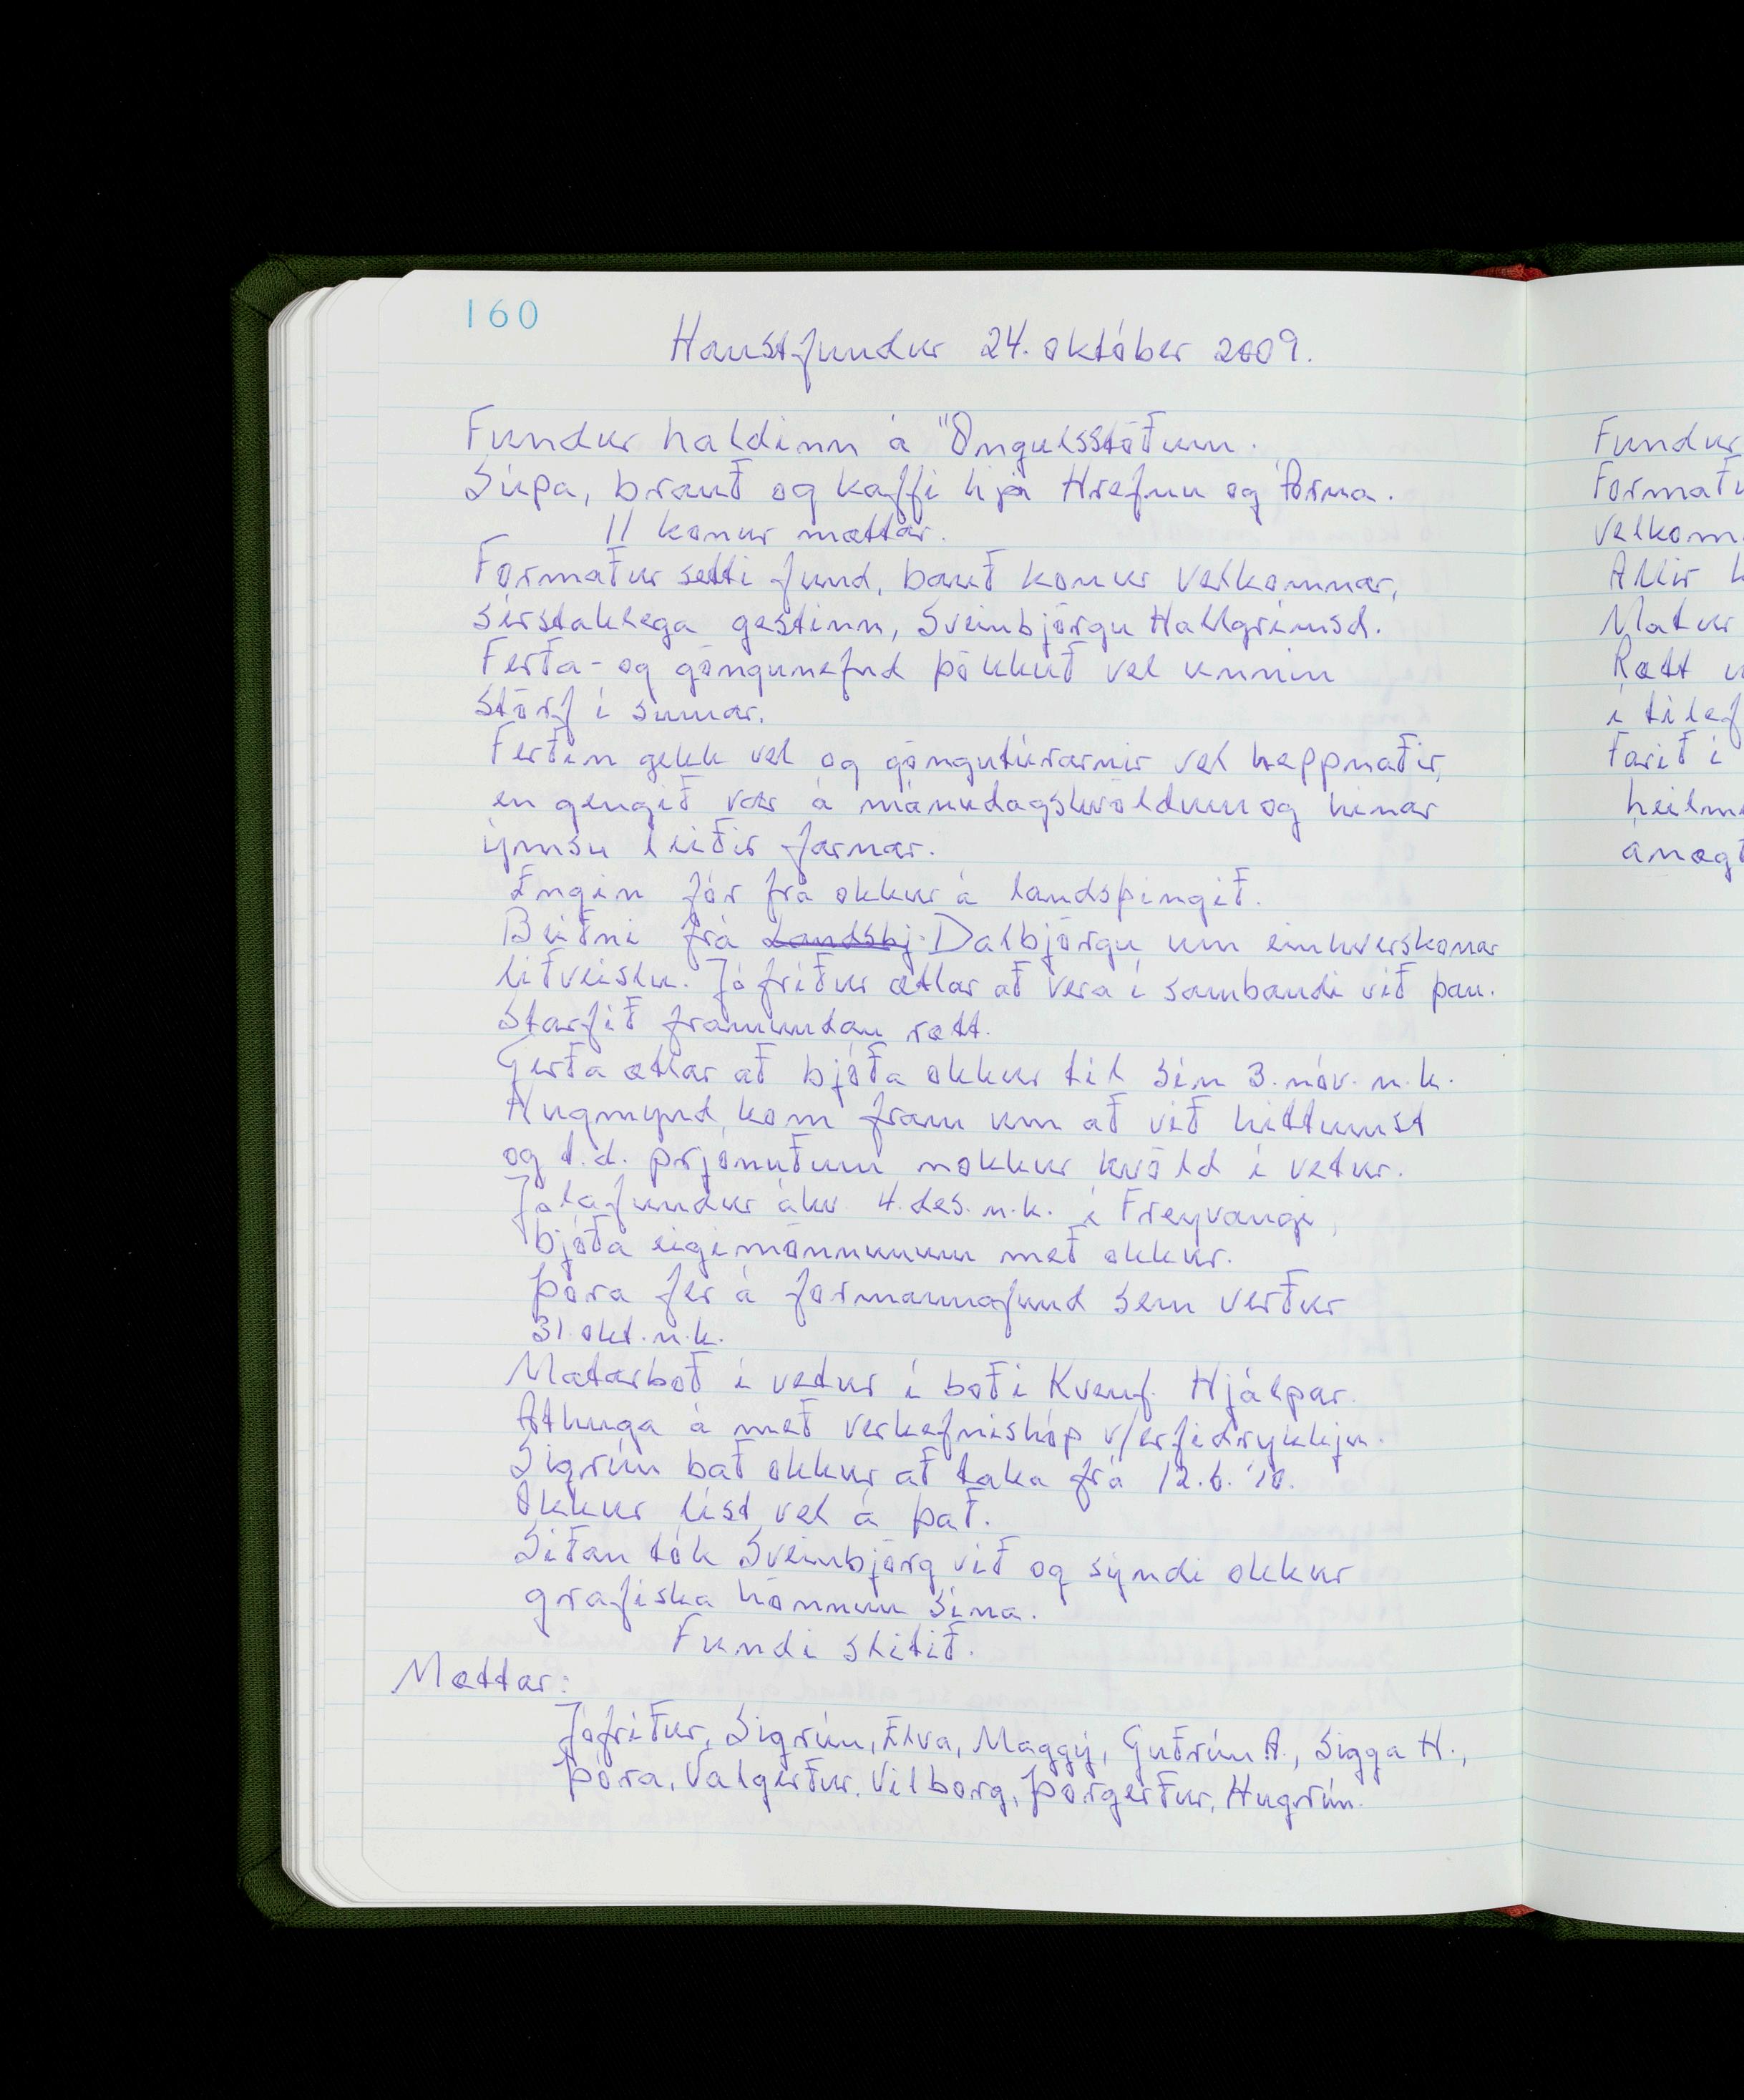 160
Haustfundur 24. október 2009.
Fundur haldinn á Öngulsstöðum.
Súpa, brauð og kaffi hjá Hrefnu og
11 konur mættar.
Formaður setti fund, bauð konur velkomnar,
sérstaklega gestinn, Sveinbjörgu Hallgrímsd.
Ferða- og göngunefnd þökkuð vel unnin
störf í sumar.
Ferðin gekk vel og göngutúrarnir vel heppnaðir,
en gengið var á mánudagskvöldum og hinar
ýmsu leiðir farnar.
Engin fór frá okkur á landsþingið.
Beiðni frá Landsbj. Dalbjörgu um einhverskonar
liðveislu. Jófríður ætlar að vera í sambandi við þau.
Starfið framundan rætt.
Gerða ætlar að bjóða okkur til sín 3. nóv. n.k.
Hugmynd kom fram um að við hittumst
og t.d. prjónuðum nokkur kvöld í vetur.
Jólafundur ákv. 4. des. n.k. í Freyvangi,
bjóða eiginmönnunum með okkur.
Þóra fer á formannafund sem verður
31. okt. n.k.
Matarboð í vetur í boði Kvenf. Hjálpar.
Athuga á með verkefnishóp v/erfidrykkju.
Sigrún bað okkur að taka frá 12.6. '10.
Okkur líst vel á það.
Síðan tók Sveinbjörg við og sýndi okkur
grafíska hönnun sína.
Fundi slitið.
Mættar:
Jófríður, Sigrún, Elva, Maggý, Guðrún A., Sigga H.,
Þóra, Valgerður, Vilborg, Þorgerður, Hugrún.
Fundur
Formaðu
velkom
Allir h
Matur
Rætt u
í tilef
farið í
heilm
ánægð